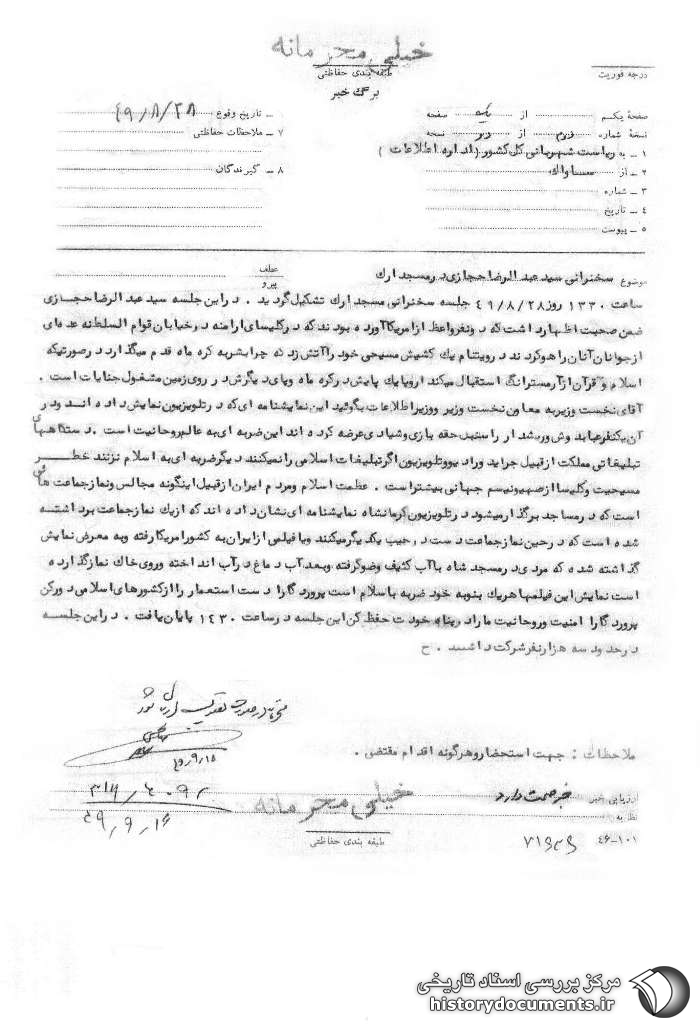 خیلی محرمانه
طبقه بندی حفاظتی
درجه فوریت
برگ خبر
صفحهٔ یکم از یک صفحه
نسخهٔ شماره دوم از دو نسخه
۱ ـ به ریاست شهربانی کل کشور (اداره اطلاعات)
۲ ـ از ساواک
۳ ـ شماره
۴ ـ تاریخ
۵ ـ پیوست
ـ تاریخ وقوع ۴۹/۸/۲۸
۷ ـ ملاحظات حفاظتی
۸ ـ گیرندگان
موضوع سخنرانی سید عبدالرضا حجازی در مسجد ارک
عطف
پیرو
ساعت ۱۳۳۰ روز ۴۹/۸/۲۸ جلسه سخنرانی مسجد ارک تشکیل گردید . در این جلسه سید عبدالرضا حجازی
ضمن صحبت اظهار داشت که دو نفر واعظ از امریکا آورده بودند که در کلیسای ارامنه در خیابان قوام السلطنه عده ای
از جوانان آنان را هو کردند در ویتنام یک کشیش مسیحی خود را آتش زد که چرا بشر به کره ماه قدم میگذارد در صورتیکه
اسلام و قرآن از آرمسترانگ استقبال میکند اروپا یک پایش در کره ماه و پای دیگرش در روی زمین مشغول جنایات است .
آقای نخست وزیر به معاون نخست وزیر و وزیر اطلاعات بگوئید این نمایشنامه ای که در تلویزیون نمایش داده اند و در
آن یکنفر عبا بدوش وریشدار را سنبل حقه بازی و شیادی عرضه کرده اند این ضربه ای به عالم روحانیت است . دستگاههای
تبلیغاتی مملکت از قبیل جراید و رادیو و تلویزیون اگر تبلیغات اسلامی را نمیکنند دیگر ضربه ای به اسلام نزنند خطر
مسیحیت و کلیسا از صهیونیسم جهانی بیشتر است . عظمت اسلام و مردم ایران از قبیل اینگونه مجالس و نماز جماعت هائی
است که در مساجد برگذار میشود در تلویزیون کرمانشاه نمایشنامه ای نشان داده اند که از یک نماز جماعت برداشته
شده است که در حین نماز جماعت دست در جیب یکدیگر میکنند و یا فیلمی از ایران به کشور امریکا رفته و به معرض نمایش
گذاشته شده که مردی در مسجد شاه با آب کثیف وضو گرفته و بعد آب دماغ در آب انداخته و روی خاک نماز گذارده
است نمایش این فیلمها هر یک بنوبه خود ضربه باسلام است پروردگارا دست استعمار را از کشورهای اسلامی دور کن
پروردگارا امنیت و روحانیت ما را در پناه خودت حفظ کن این جلسه در ساعت ۱۴۳۰ پایان یافت . در این جلسه
در حدود سه هزار نفر شرکت داشتند . ح
ملاحظات : جهت استحضار و هرگونه اقدام مقتضی .
۴۹/۹/۱۵
ارزیابی خبر خبر صحت دارد
نظریه
خیلی محرمانه
۴۹/۹/۱۶
طبقه بندی حفاظتی
۴۶-۱۰۱
مرکز بررسی اسناد تاریخی
historydocuments.ir